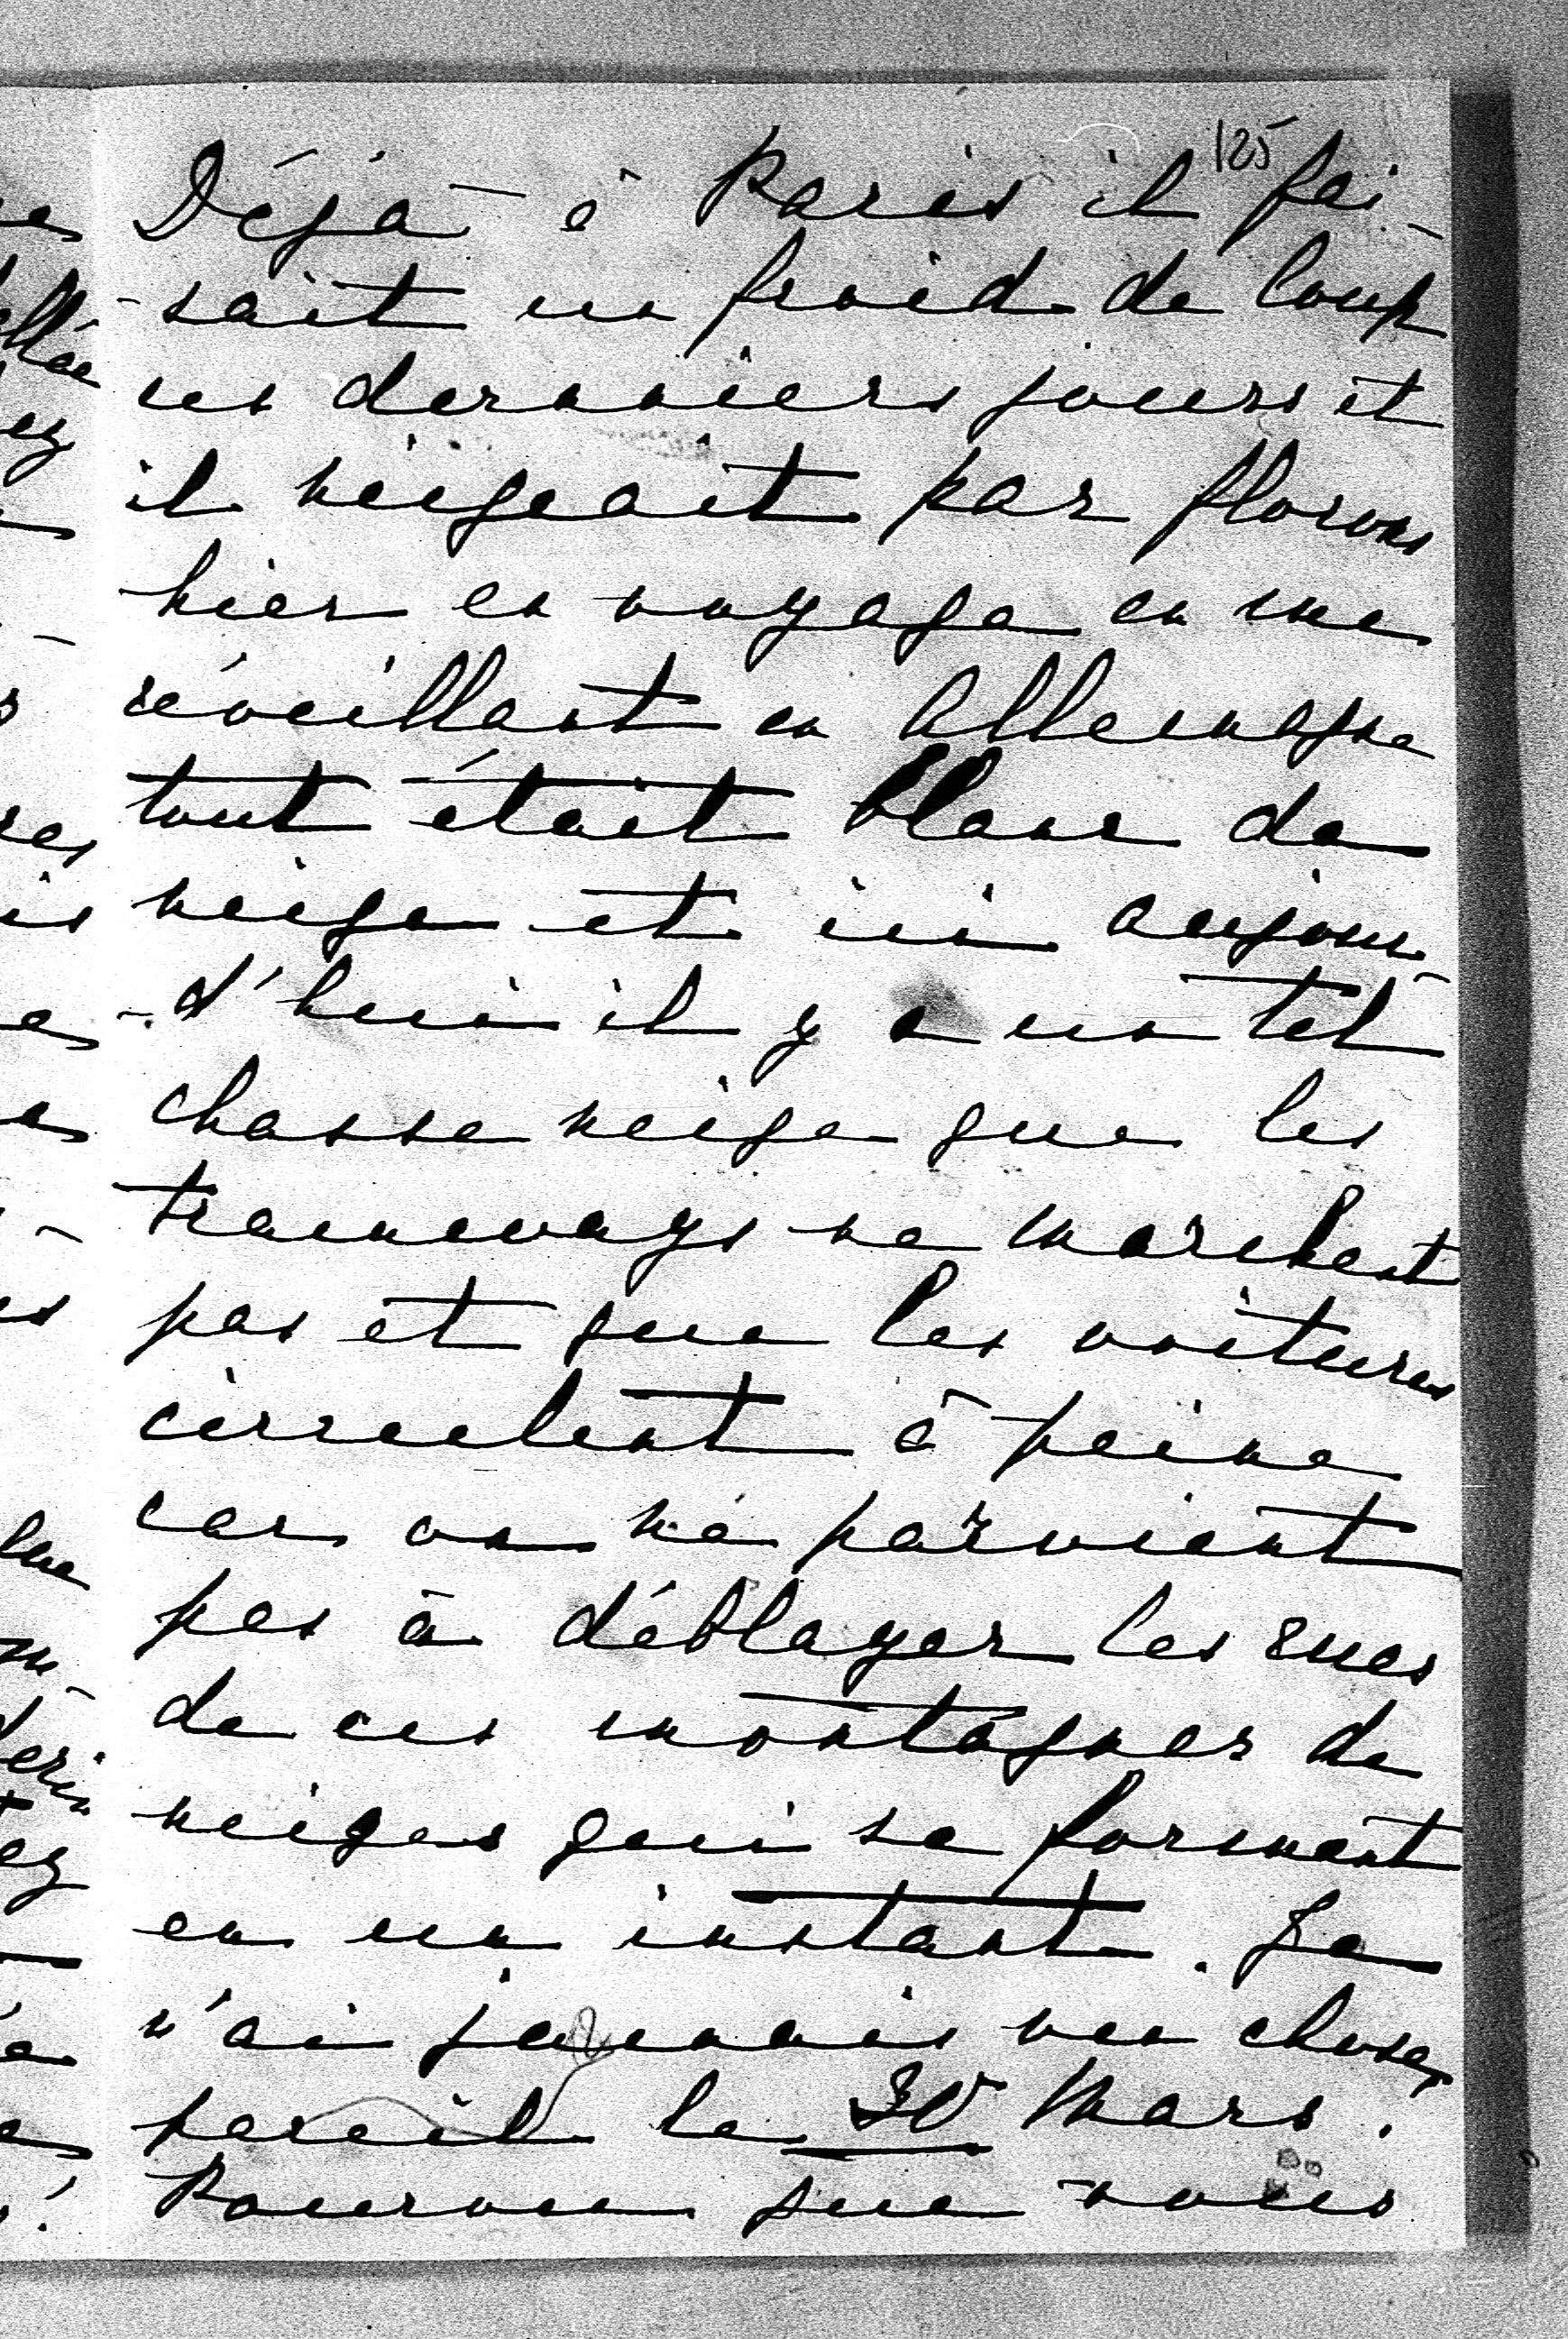 125
Déjà à Paris il fai-
-sait un froid de loup
ces derniers jours et
il neigeait par flocons
hier en voyage en me
réveillant en Allemagne
tout était blanc de
neige et ici aujour-
-d'hui il y a un tel
chasse neige que les
tramways ne marchent
pas et que les voitures
circulent à peine
car on ne parvient
pas à déblayer les rues
de ces montagnes de
neiges qui se forment
en un instant. Je
n'ai jamais vu chose
pareil le 30 Mars.
Pourvu que vous